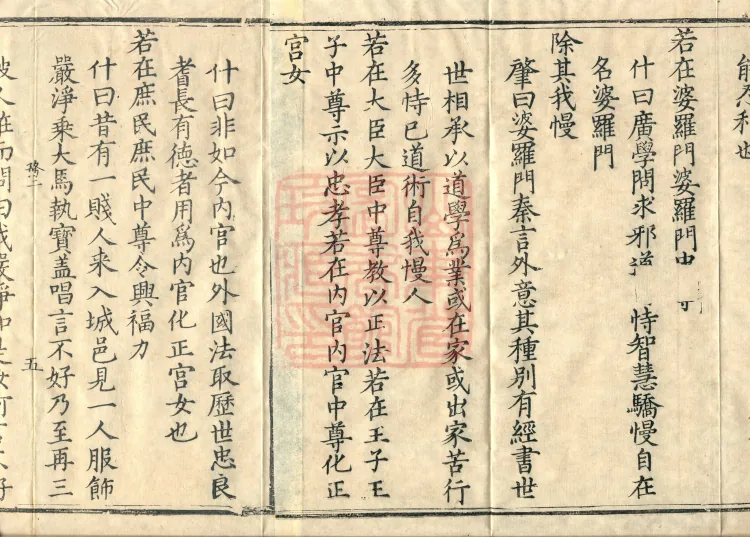 能忍和也
若在婆羅門婆羅門中
什曰廣學問求邪道 恃智慧驕慢自在
名婆羅門
除其我慢
肇曰婆羅門秦言外意其種別有經書世
世相承以道學為業或在家或出家苦行
多恃已道術自我慢人
若在大臣大臣中尊教以正法若在王子王
子中尊示以忠孝若在內官內官中尊化正
宮女
什曰非如今內官也外國法取歷世忠良
耆長有德者用為內官化正宮女也
若在庶民庶民中尊令興福力
什曰昔有一賤人来入城邑見一人服飾
五
嚴淨乘大馬執寶盖唱言不好乃至再三